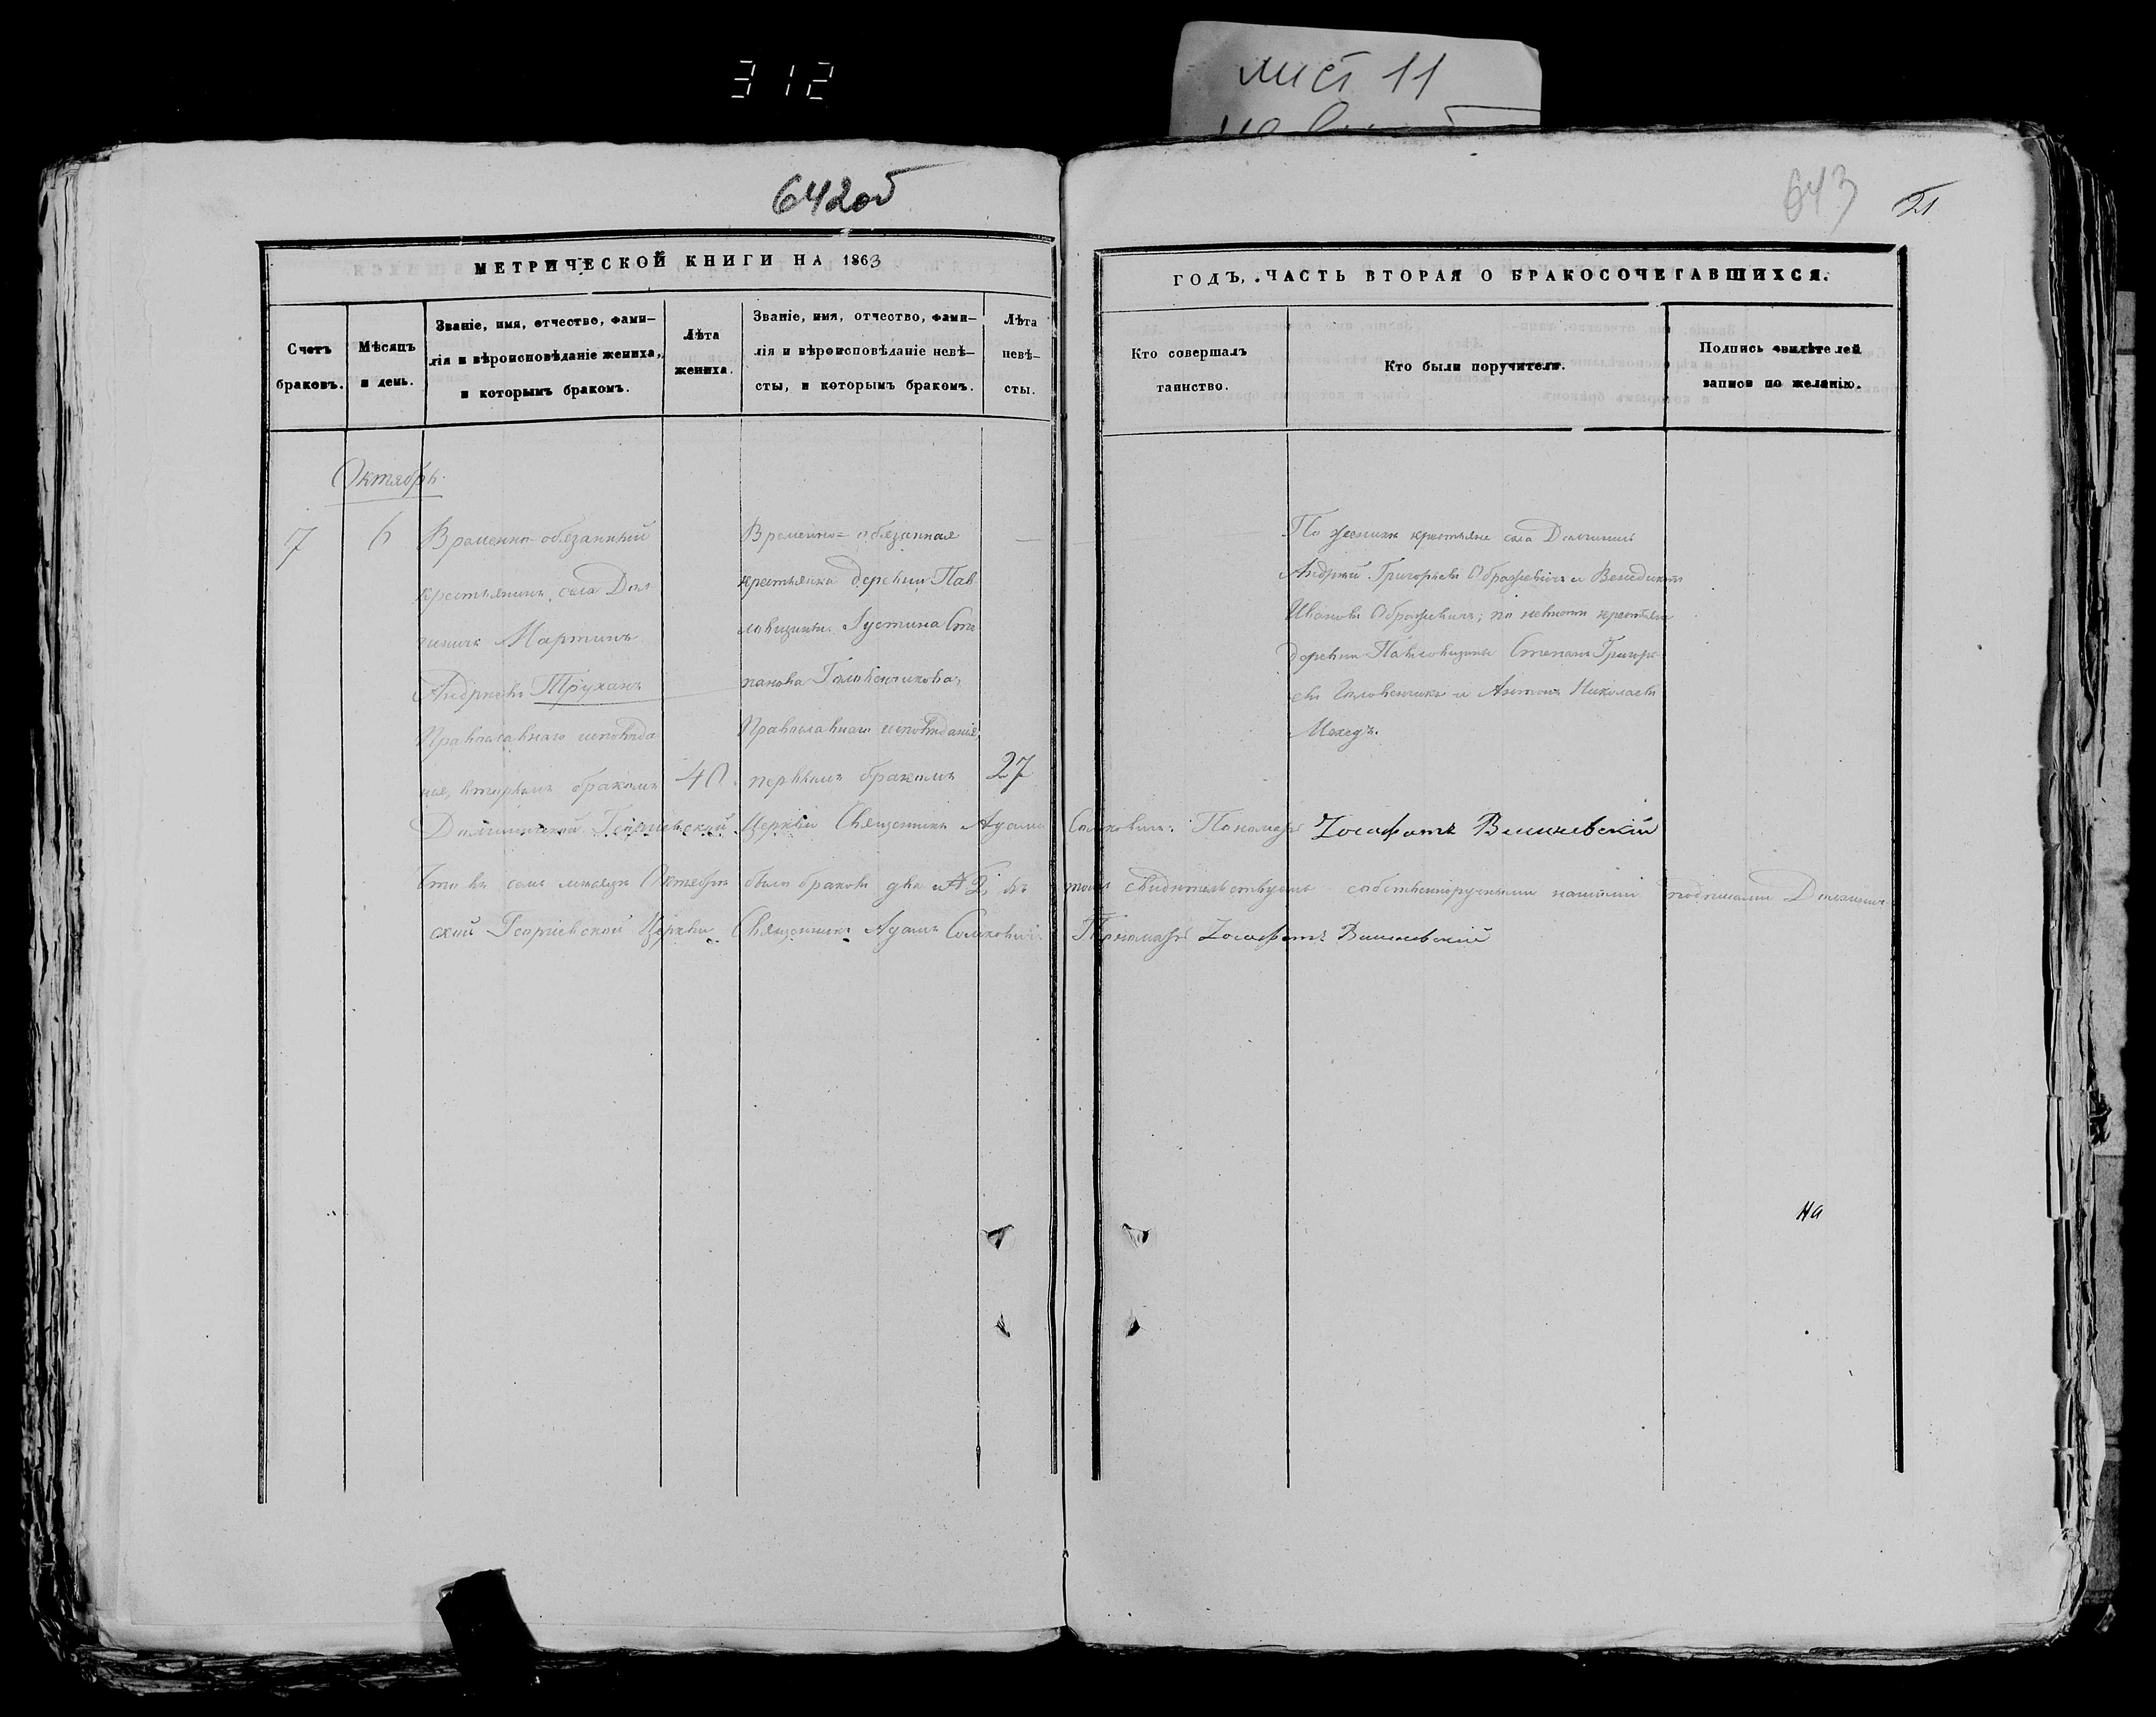 312
лист 11
642об
643
21
МЕТРИЧЕСКОЙ КНИГИ НА 1863
ГОДЪ, ЧАСТЬ ВТОРАЯ О БРАКОСОЧЕТАВШИХСЯ.
Счетъ браковъ.
Мѣсяцъ и день.
Званіе, имя, отчество, фами–
лія и вѣроисповѣданіе жениха,
и которымъ бракомъ.
Лѣта
жениха.
Званіе, имя, отчество, фами–
лія и вѣроисповѣданіе невѣ–
сты, и которымъ бракомъ.
Лѣта
невѣ–
сты.
Кто совершалъ
таинство.
Кто были поручители.
Подпись свидѣтелей
записи по желанію.
Октябрь.
7
6
Временно-обязанный
крестьянинъ села
Мартинъ
Андреевъ Труханъ
Православнаго исповѣда
нія, вторымъ бракомъ
40.
Временно=обязанная
крестьянка деревни Пав
ловщины Аустина Сте
панова Головенчикова,
Православнаго исповѣданія,
первымъ бракомъ
27
По женихѣ крестьяне села
Андрей Григорьевъ Ображевичъ и Венедиктъ
Ивановъ Ображевичъ; по невѣстѣ крестьяне
деревни Павловщины Степанъ Григорь
евъ и Антонъ Николаевъ
Георгіевской Церкви Священникъ Адамъ Пономарь Іосафатъ Вишневскій
Что въ семъ мѣсяцѣ Октябрѣ было браковъ два № 2, въ томъ свидѣтельствуемъ собственноручными нашими подписами
ской Георгіевской Церкви Священникъ Адамъ Пономарь Іосафатъ Вишневскій
на